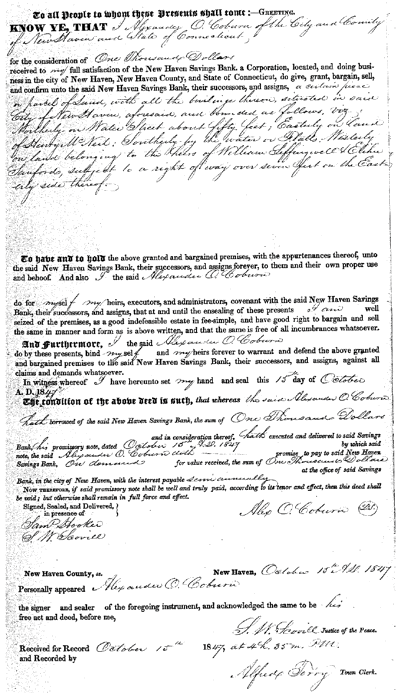 To all People to whom these Presents shall come:—GREETING.
KNOW YE, THAT I Alexander O. Coburn of the City and County
of New Haven and State of Connecticut,
for the consideration of One Thousand Dollars
received to my full satisfaction of the New Haven Savings Bank, a Corporation, located, and doing busi-
ness in the city of New Haven, New Haven County, and State of Connecticut, do give, grant, bargain, sell,
and confirm unto the said New Haven Savings Bank, their successors, and assigns, a certain piece
or parcel of Land, with all the buildings thereon, situated in said
City of New Haven, aforesaid, and bounded as follows, viz
Northerly on Water Street about fifty feet; Easterly on land
of Henry McNeil; Southerly by the water or flats; Westerly
on land belonging to the heirs of William Leffingwell & Elihu
Sanfords, subject to a right of way over seven feet on the East
side thereof.
To have and to hold the above granted and bargained premises, with the appurtenances thereof, unto
the said New Haven Savings Bank, their successors, and assigns forever, to them and their own proper use
and behoof. And also I the said Alexander O. Coburn
do for myself my heirs, executors, and administrators, covenant with the said New Haven Savings
Bank, their successors, and assigns, that at and until the ensealing of these presents I am well
seized of the premises, as a good indefeasible estate in fee-simple, and have good right to bargain and sell
the same in manner and form as is above written, and that the same is free of all incumbrances whatsoever.
And Furthermore, I the said Alexander O. Coburn
do by these presents, bind myself and my heirs forever to warrant and defend the above granted
and bargained premises to the said New Haven Savings Bank, their successors, and assigns, against all
claims and demands whatsoever.
In witness whereof I have hereunto set my hand and seal this 15th day of October
A. D. 1847
The condition of the above deed is such, that whereas the said Alexander O Coburn
hath borrowed of the said New Haven Savings Bank, the sum of One Thousand Dollars
and in consideration thereof, hath executed and delivered to said Savings
Bank, his promissory note, dated October 15th A.D. 1847 by which said
note, the said Alexander O. Coburn doth promise to pay to said New Haven
Savings Bank, On demand for value received, the sum of One Thousand Dollars
at the office of said Savings
Bank, in the city of New Haven, with the interest payable semi annually.
NOW THEREFORE, if said promissory note shall be well and truly paid, according to its tenor and effect, then this deed shall
be void; but otherwise shall remain in full force and effect.
Signed, Sealed, and Delivered,
in presence of
Alex O. Coburn
Saml Hooker
S. W. Scovill
New Haven County, ss. New Haven, October 15th A.D. 1847
Personally appeared Alexander O. Coburn
the signer and sealer of the foregoing instrument, and acknowledged the same to be his
free act and deed, before me,
S. W. Scovill Justice of the Peace.
Received for Record October 15th 1847, at 4h. 35m P.M.
and Recorded by
Alfred Terry Town Clerk.